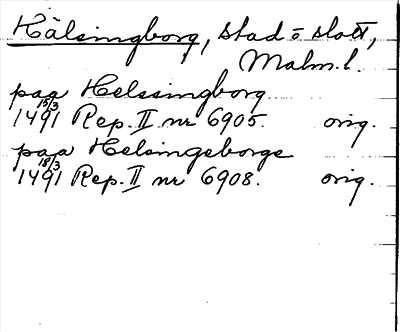 Hälsingborg, stad o slott,
Malm. l.
paa Helssingborg
1491 15/3 Rep. II nr 6905. orig.
paa Helsingeborge
1491 18/3 Rep. II nr 6908. orig.